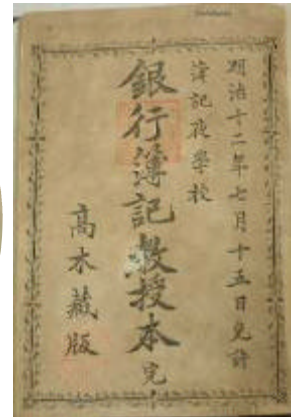 明治十二年七月十五日免許
簿記夜學校
銀行簿記教授本 完
高木藏版